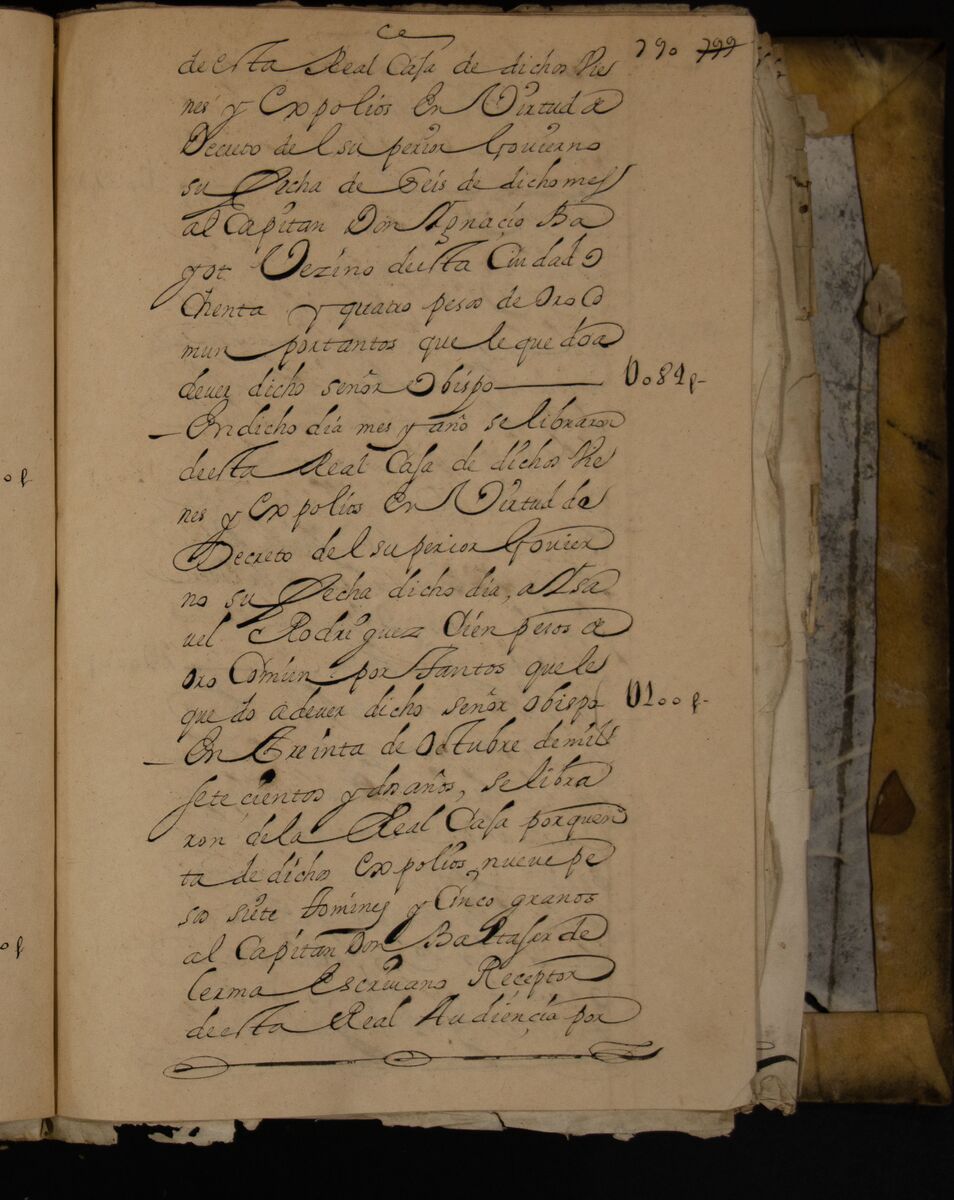 ce
790 799
de esta Real Casa de dichos Vie
nes y Expolios En Virtud de
Decreto del superior Govierno
su Fecha de Seis de dicho mes
al Capitan Don Ygnacio Ba
yot Vezino de esta Ciudad O
Chenta y quatro pesos de Oro Co
mun por tantos que le quedo a
dever dicho señor Obispo U084p
En dicho dia mes y año se libraron
de esta Real Casa de dichos Vie
nes y Expolios En Virtud de
Decreto del superior Govier
no su Fecha dicho dia, a Ysa
vel Rodriguez Cien pesos de
oro Comun por tantos que le
quedo a dever dicho señor Obispo U100p
En treinta de Octubre de mill
setecientos y dos años, se libra
ron de la Real Casa por quen
ta de dichos Expolios, nueve pe
sos siete tomines y Cinco granos
al Capitan Don Baltaser de
Lerma Escrivano Receptor
de esta Real Audiençia por